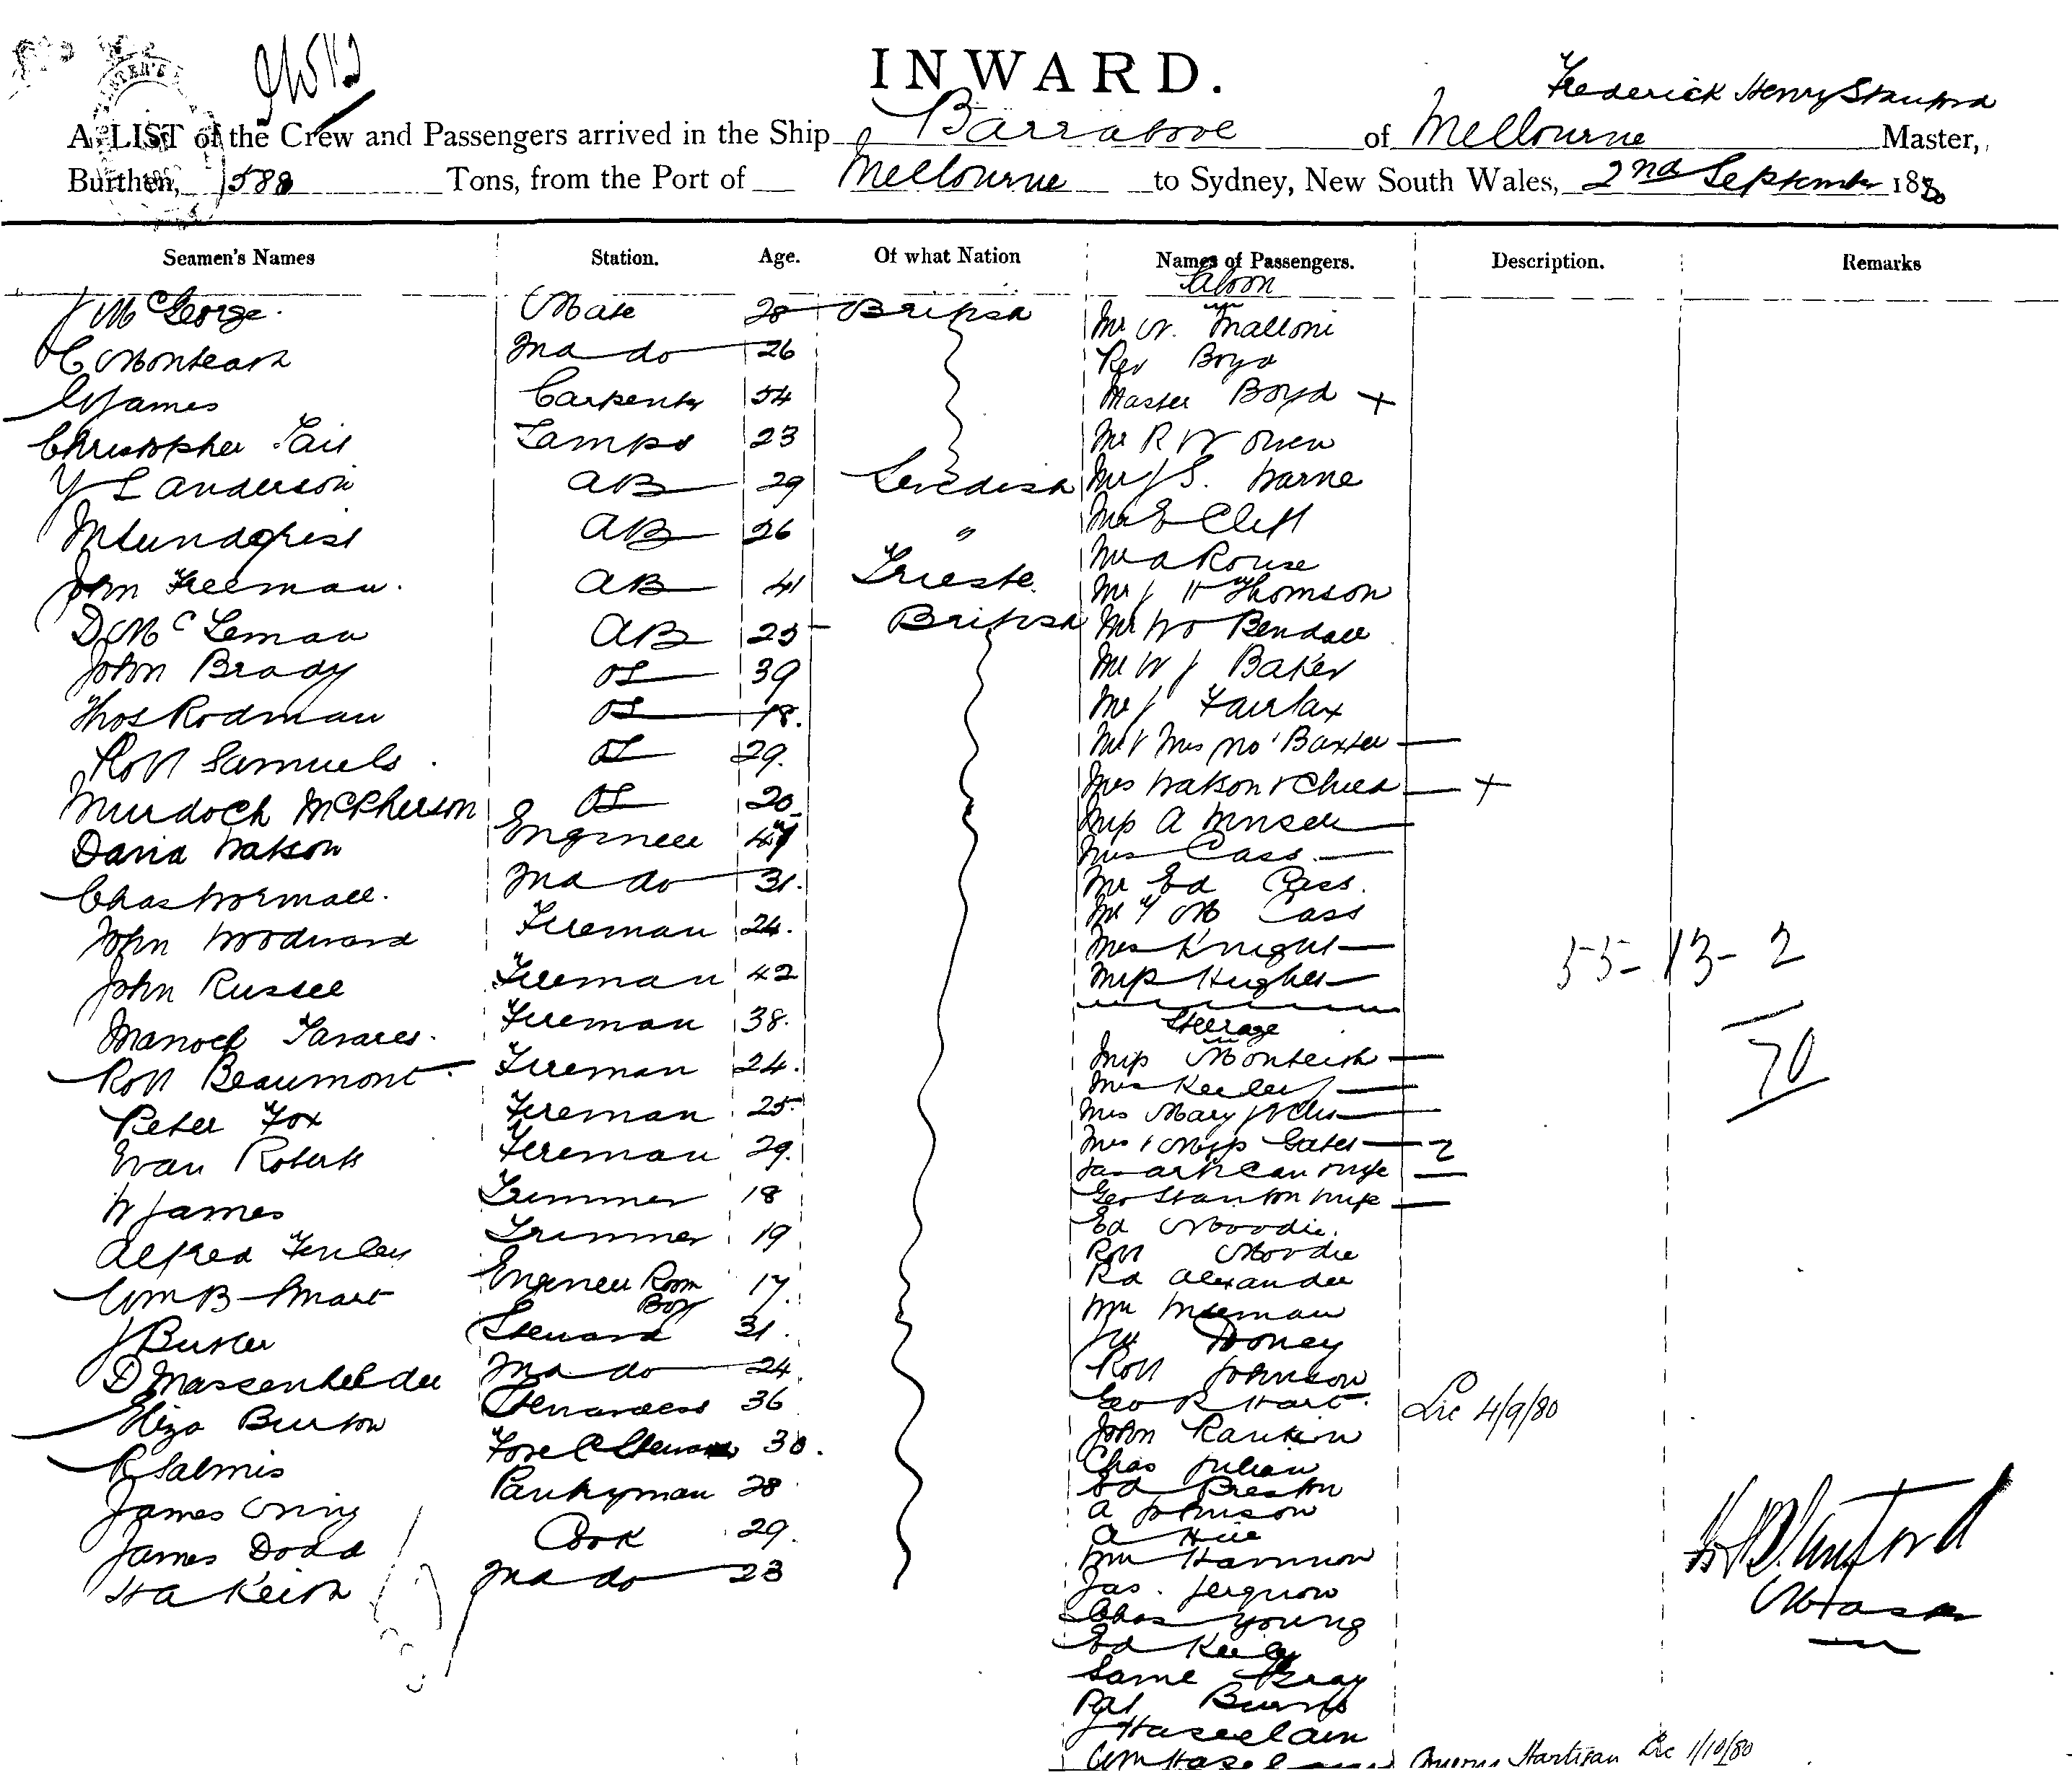 INWARD.
Frederick Henry Stanford
A LIST of the Crew and Passengers arrived in the Ship Barrabool of Melbourne Master,
Burthen, 588 Tons, from the Port of Melbourne to Sydney, New South Wales, 2nd September 1880
Seamen's Names Station. Age. Of what Nation Names of Passengers. Description. Remarks
Saloon
J McGeorge Mate 28 British
C Monteath 2nd do 26
James Carpenter 54
Christopher Tait Lamps 23
Y L Anderson AB 29 Swedish
M Lundqvist AB 26 "
John Freeman AB 41 Trieste
D McLeman AB 25 British
John Brady OS 39
Thos Rodman OS 18.
Robt Samuels OS 29.
Murdoch McPherson OS 20
David Watson Engineer
Chas Wormall 2nd do 31.
John Woodward Fireman 24.
John Russell Fireman 42
Manoel Tavares Fireman 38.
Robt Beaumont Fireman 24.
Peter Fox Fireman 25
Evan Roberts Fireman 29.
W James Trimmer 18
Alfred Trimmer 19
Wm B Smart Engineer Room Boy 17.
J Steward 31.
D 2nd do 24
Eliza Burton Stewardess 36
R Salmis Fore C Steward
James Pantryman 28
James Dodd Cook 29.
H A Keith 2nd do 23
Mr Malloni
Rev Boyd
Master Boyd +
Mr R W Owen
Mr J S. Warne
Mr E Clift
Mr A Rouse
Mr J H Thomson
Mr Wm Bendall
Mr W J Baker
Mr J Fairfax
Mr & Mrs Baxter
Mrs Watson & Child +
Miss A
Mrs Cass
Mr Ed Cass.
Mr Cass
Mrs Knight
Miss Hughes
Steerage
Miss Monteith
Mrs Keeley
Mrs Mary
Mrs & Miss Gates 2
wife
Geo Stanton wife
Ed Moodie
Robt Moodie
Rd Alexander
Wm
Dooney
Robt Johnson
Geo R Hart. Lic 4/9/80
John Rankin
Chas Julian
Ed Preston
A Johnson
A Hill
Wm Hammon
Jas.
Chas Young
Ed Keily
Saml Gray
Pat Burns
J Haseelam
Wm Hartigan Lic 1/10/80
55-13-2
70
Stanford
Master